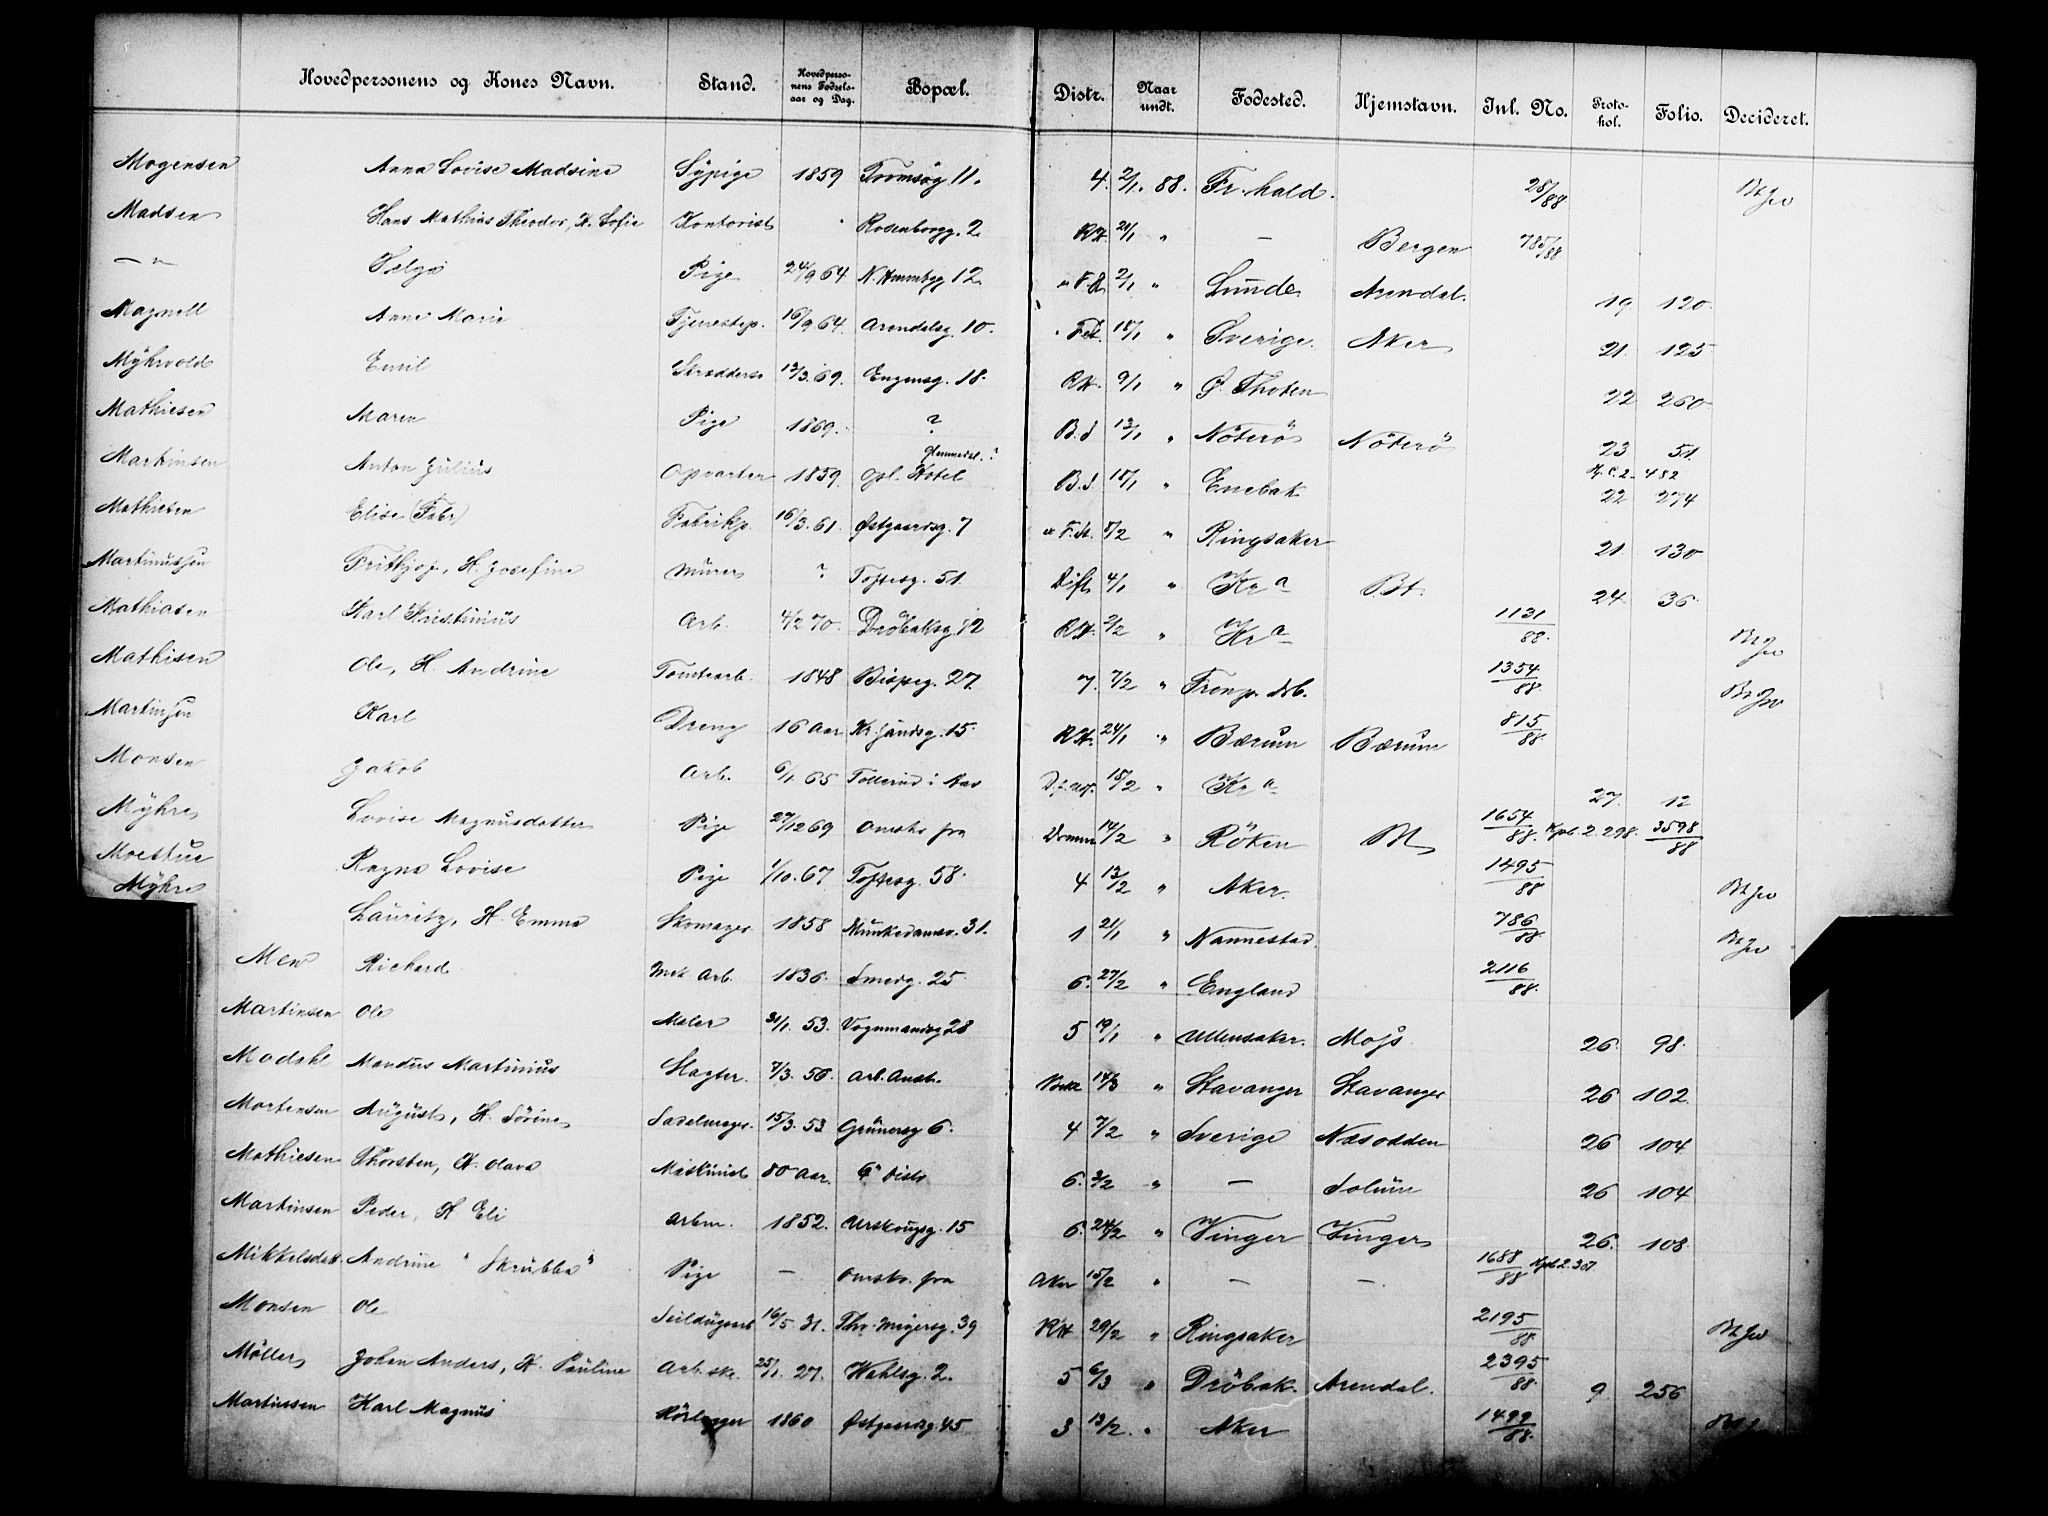 Hovedpersonens og Kones Navn. Stand. Hovedperso-nens Fødsels-aar og Dag. Bopæl. Distr. Naar undt. Fødested. Hjemstavn. Inl. No. Proto-kol. Folio. Decideret.
Mogensen Anna Lovise Madsine Sypige 1859 Tromsøg 11. 4. 2/1. 88. Fr.hald. 28/88
Madsen Hans Mathias Theodor, H. Sofie Kontorist " Rosenborgg. 2 RH. 21/1 " — Bergen 785/88
— " Helga Pige 24/9 64 12 2/1 " Lunde Arendal. 19 120.
Magnell Anne Marie Tjenestep. 16/9 64. Arendalsg. 10. 18/1 " Sverige. Aker 21. 125
Myhrvold Emil 13/3. 69. Engensg. 18. RH. 9/1 " Ø. Thoten 22 260
Mathiesen Maren Pige 1869. ? B.d 13/1 " Nöterö Nöterö 23 51.
Martinsen Anton Julius Opvarter 1859. Hotel B.d. 18/1 " Enebak 482 22 274
Mathiesen Elise (Fabr) Fabrikp. 16/3. 61. Østgaardsg. 7 8/2 " Ringsaker 21. 130
Martinussen Frithjof, H. Josefine Murer ? Toftesg. 51. Dift 4/1 " Kr a Bt. 24. 36.
Mathiasen Karl Kristinius Arb. 4/2 70. Dröbaksg. 12 RH. 2/2 " Kr a 1131/88.
Mathisen Ole, H. Andrine Tomtearb. 1848 Bispeg. 27. 7. 7/2 " 1354/88.
Martinsen Karl Dreng 16 Aar Kr.sandsg. 15. RH. 24/1 " Bærum Bærum 815/88.
Monsen Jakob Arb. 6/1 65 18/2 " Kr a 27. 12
Myhre Lovise Magnusdatter Pige 27/12 69 Omst. fra 14/2 " Röken 1654/88. 2. 298. 3598/88
Moestue Ragna Lovise Pige 1/10. 67 Toftesg. 58. 4 13/2 " Aker. 1495/88
Myhre Lauritz, H. Emma Skomager 1858 Munkedamsv. 31. 1 21/1 " Nannestad. 786/88.
Richard Arb. 1836. Smedg. 25 6. 27/2 " England 2116/88.
Martinsen Ole Maler 31/1. 53. Vognmandsg 28 5 19/1 " Ullensaker. Mofs. 26. 98.
Mandus Martinius Slagter. 7/3. 56. Arb. Anst. 14/3 " Stavanger Stavanger 26 102.
Mortensen August, H. Sörine Sadelmager. 15/3. 53 Grünersg 6. 4 7/2 " Sverige Næsodden 26 104
Mathiesen Thorsten, H. Olava Maskinist 80 Aar. 6' Distr 6. 3/2 " — Solum 26 104
Martinsen Peder, H Eli Arbm. 1852. Urskougsg. 15 6. 24/2 " Vinger Vinger 26. 108.
Mikkelsdatt. Andrine "Skrubba" Pige — Omstr. fra Aker 15/2 " — — 1688/88 2.301.
Monsen Ole 16/5. 31. Thv. Meyersg. 39 RH 29/2 " Ringsaker 2195/88
Möller Johan Anders, H. Pauline Arb. ske. 25/1. 27. Wahlsg. 2. 5 6/3 " Dröbak. Arendal. 2395/88. 9. 256
Martinsen Karl Magnus Rörlegger 1860 Østgaardsg 45 3 13/2. " Aker 1499/88.